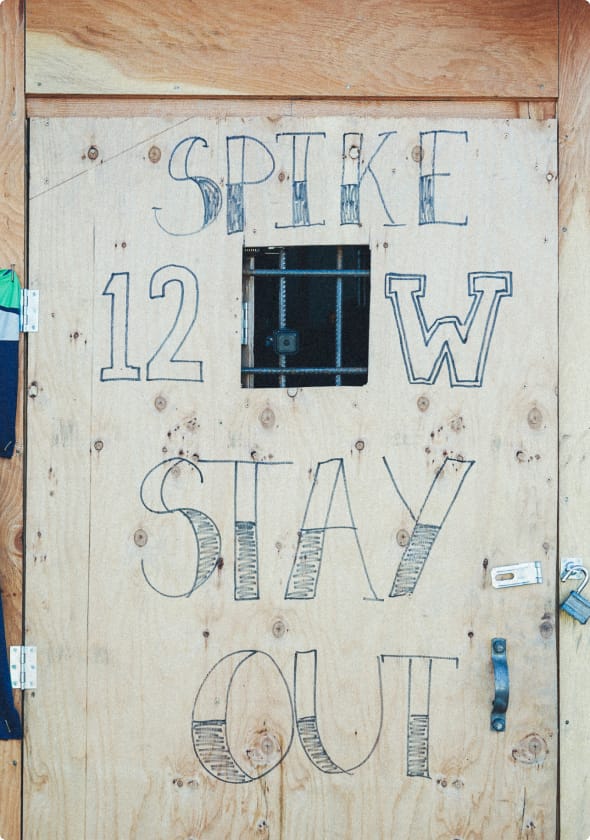 SPIKE
12 W
STAY
OUT